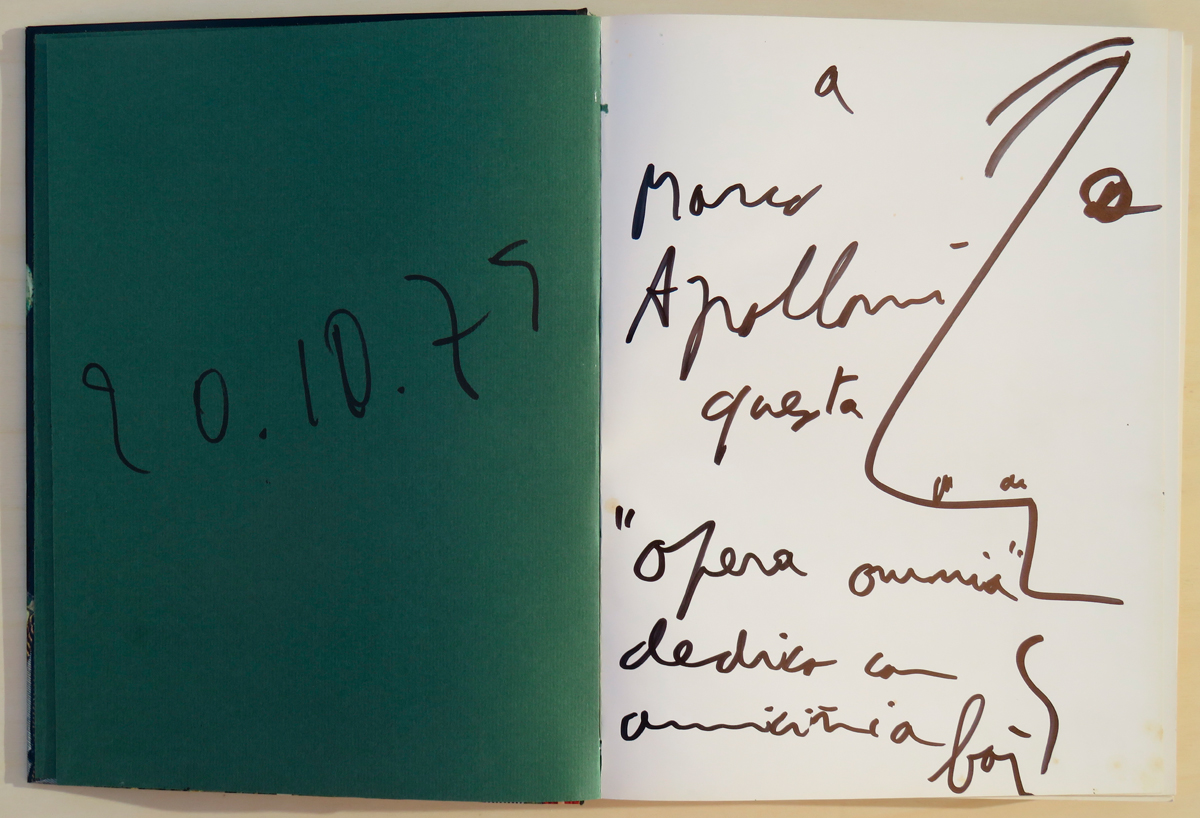 20.10.79
a
Marco
Apolloni
questa
"opera omnia"
dedico con
amicizia baj